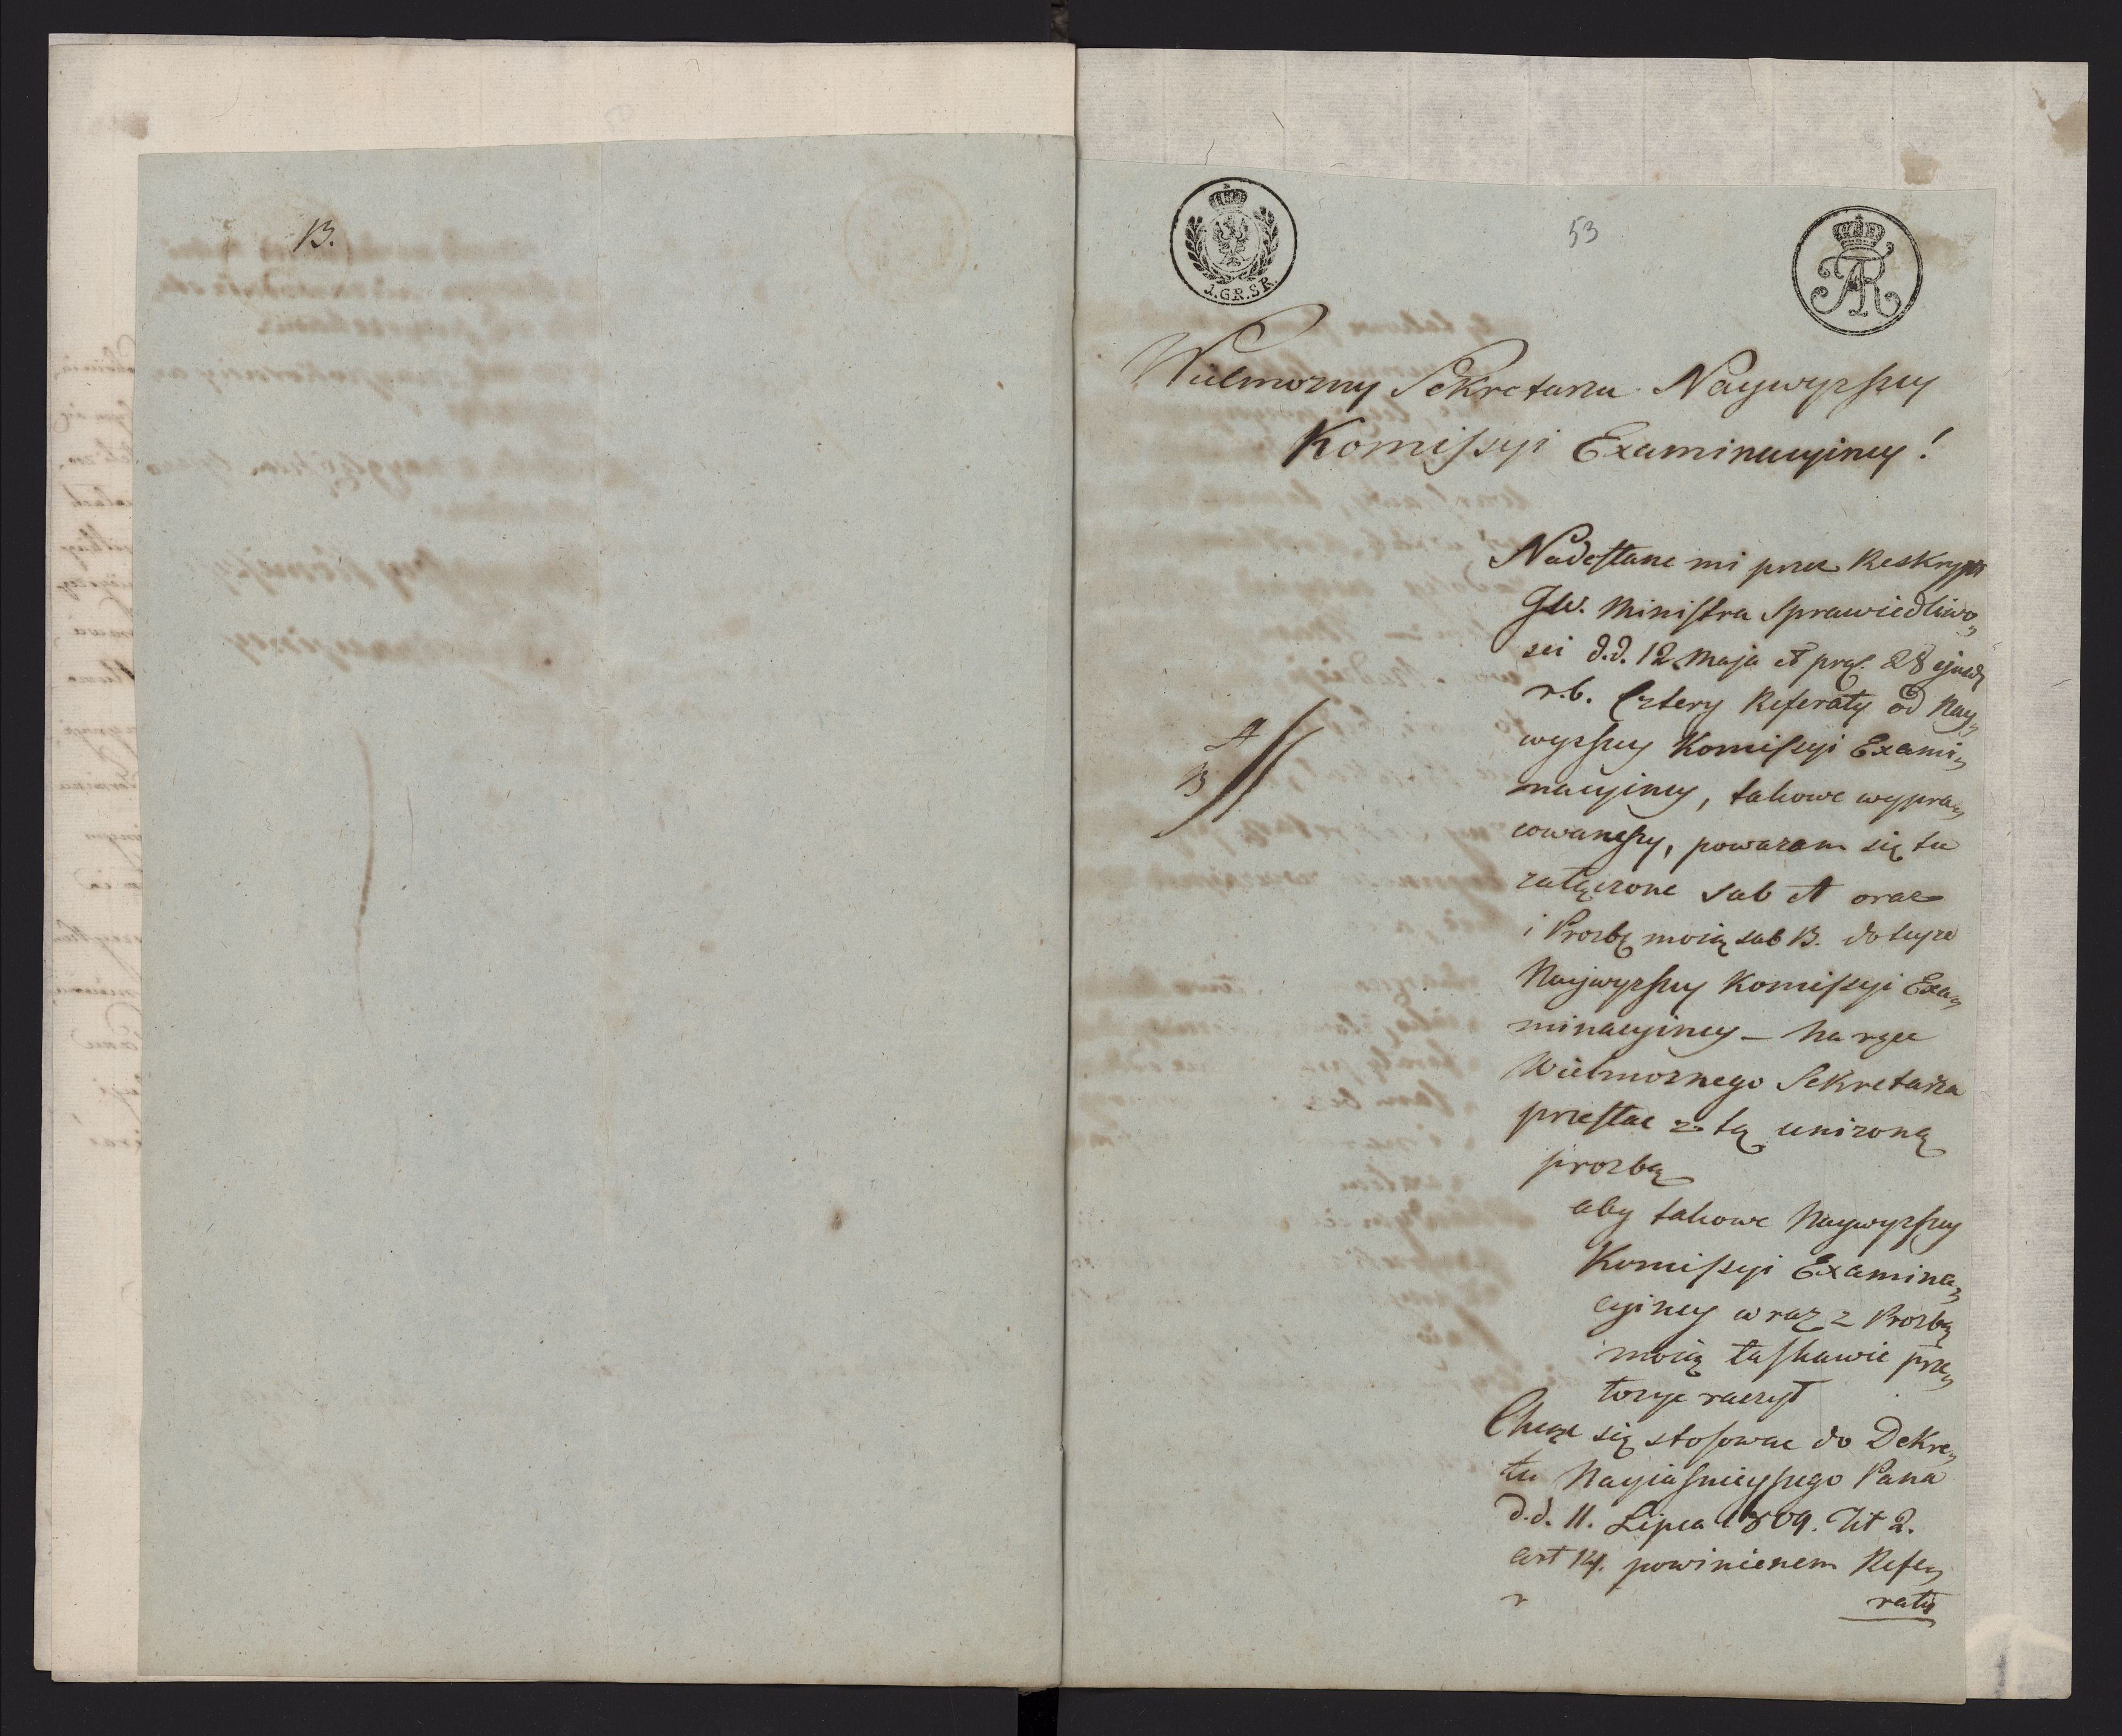 B.
1.GR.SR.
53
FAR
Wielmozny Sekretarzu Naywyzszey
Komissyi Examinacyiney!
Nadesłane mi przez Reskrypt
JW. Ministra Sprawiedliwo„
sci d.d. 12 Maja et prs. 28 ejusd
r.b. Cztery Referaty od Nay„
wyzszey Komissyi Exami„
nacyiney, takowe wypra„
cowawszy, powazam się tu
załączone sub A oraz
i Prozbę moię sub B. do teyze
Naywyzszey Komissyi Exa„
minacyiney – na ręce
Wielmoznego Sekretarza
przesłac z tą unizoną
prozbą
aby takowe Naywyzszey
Komissyi Examina„
cyiney wraz z Prozbą
moią łaskawie prze„
łozyc raczył
Chcąc się stosowac do Dekre„
tu Nayiasnieyszego Pana
d.d. 11. Lipca 1809. Tit 2.
art 14. powinienem Refe„
raty
A
B